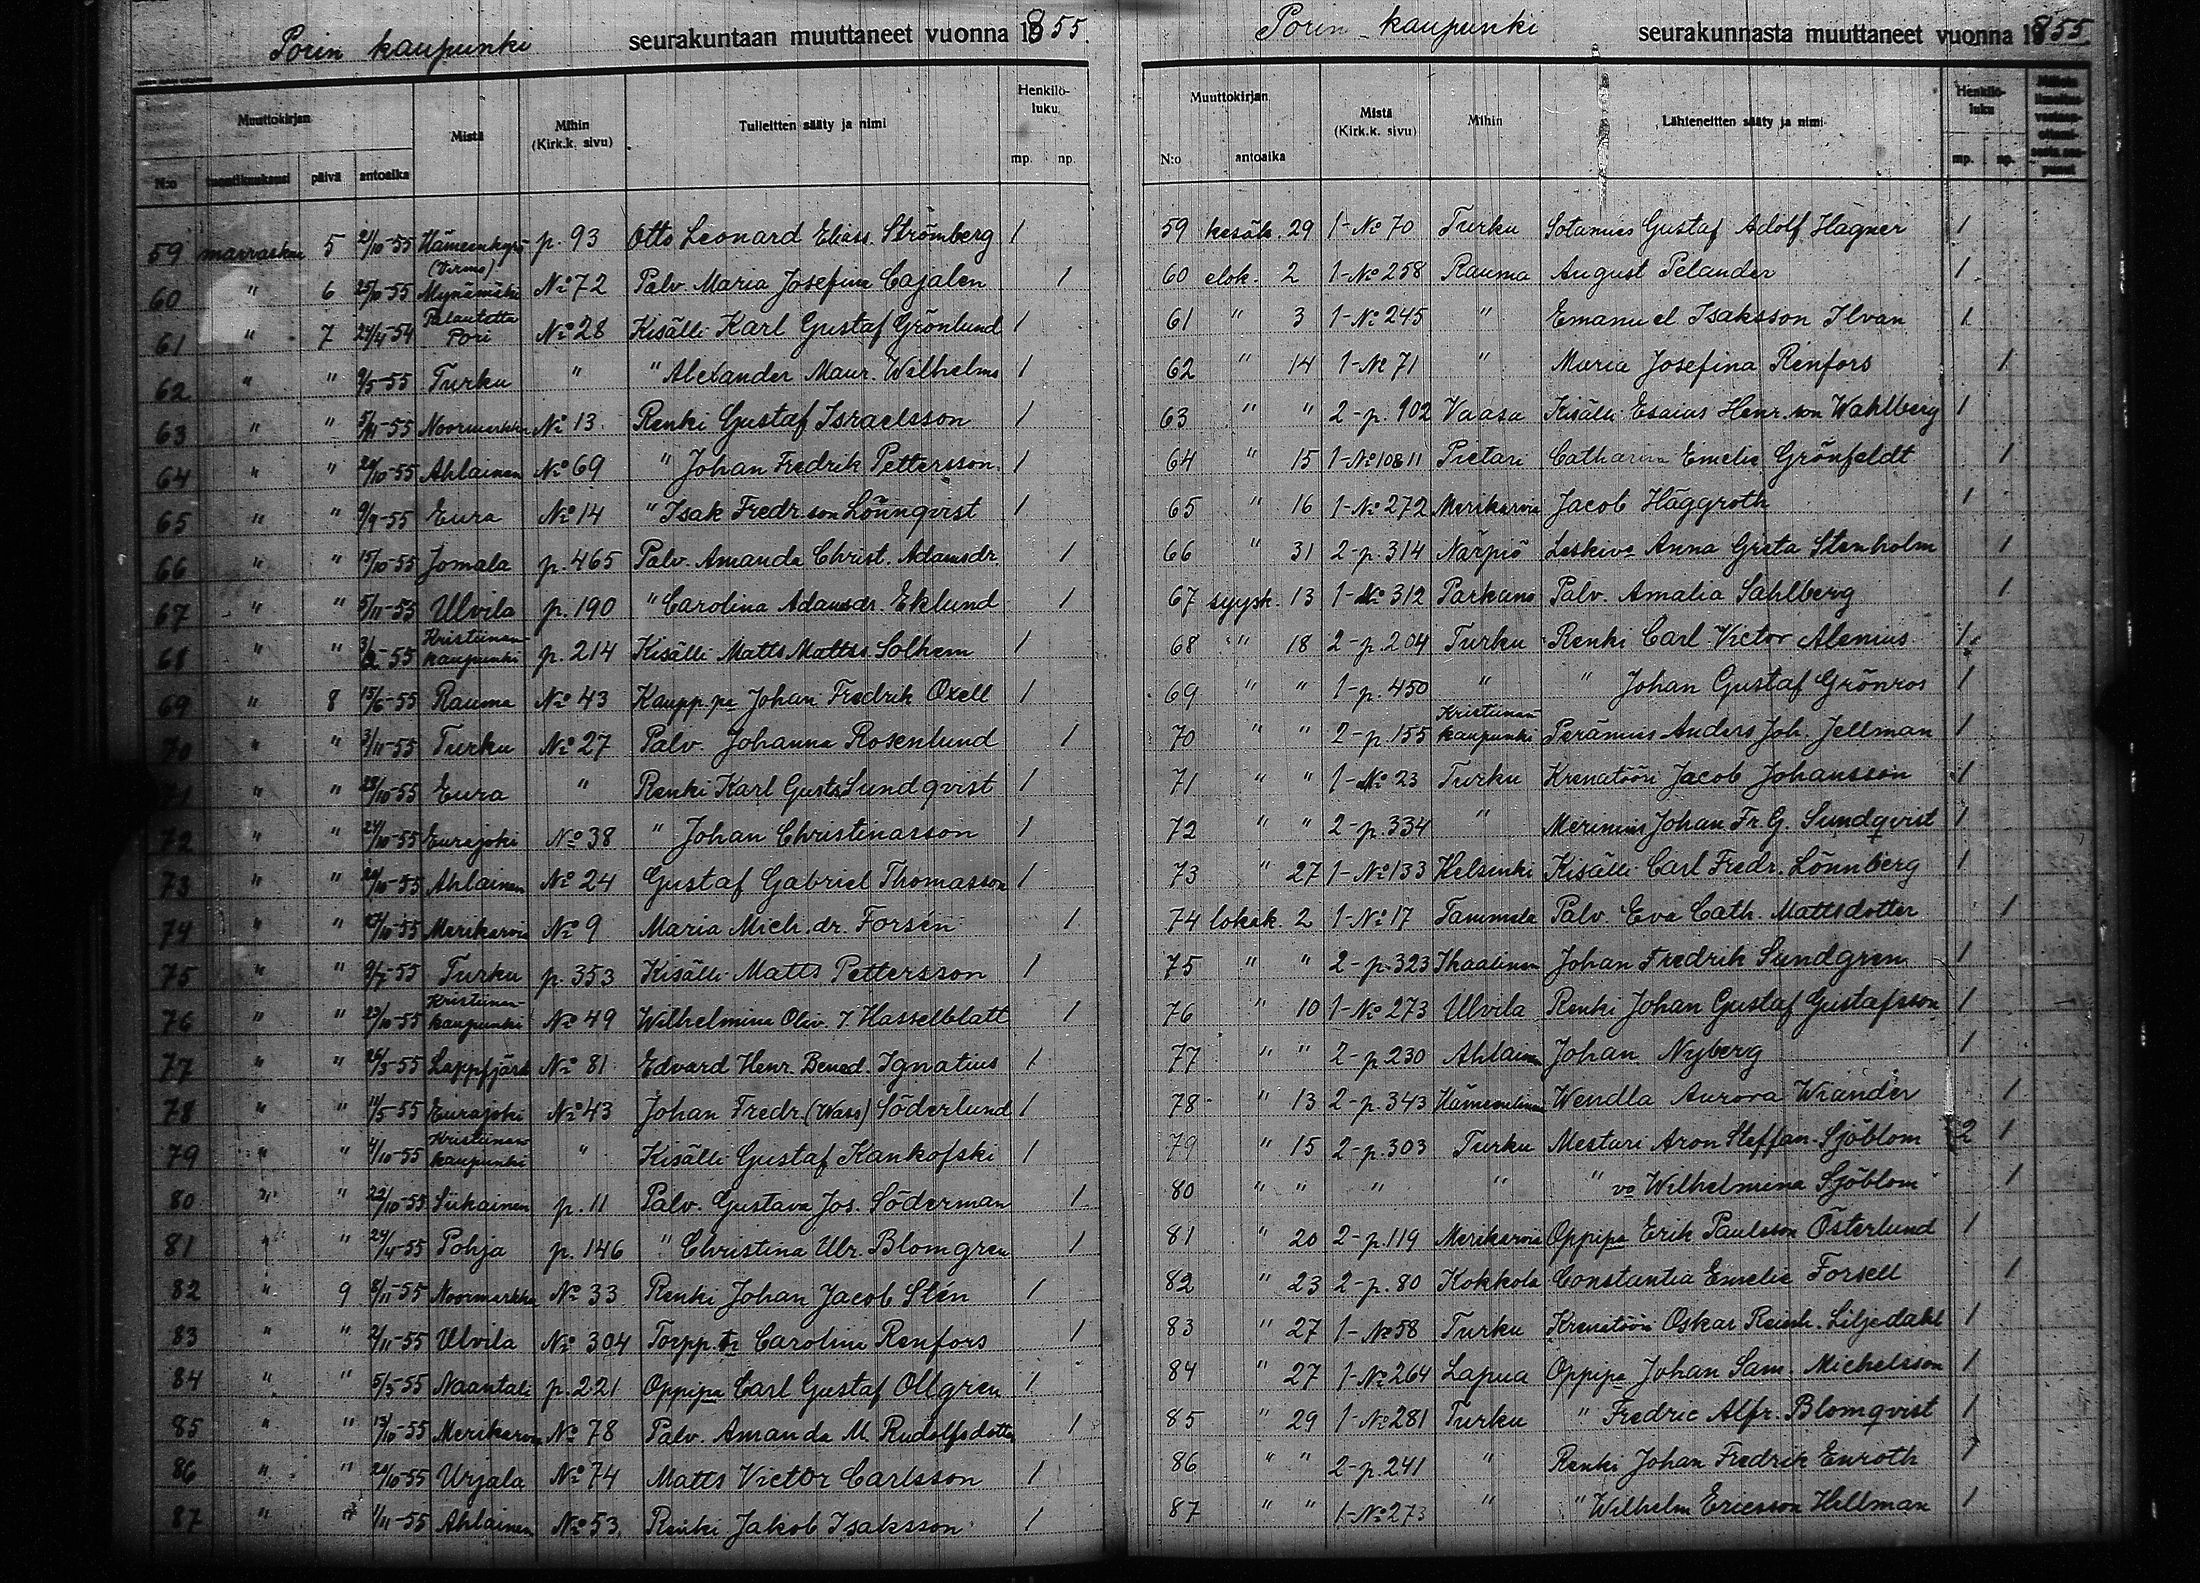 Porin kaupunki seurakuntaan muuttaneet vuonna 1855.
Muuttokirjan Mistä Mihin (Kirk.k. sivu) Tulleitten sääty ja nimi Henkilö-luku
N:o tuontikuukausi päivä antoaika mp. np.
59 marraskuu 5 21/10-55 Hämeenkyrö p. 93 Otto Leonard Eliass. Strömberg 1
60 " 6 25/10-55 (Virmo) Mynämäki No 72 Palv. Maria Josefina Cajalen 1
61 " 7 24/4-54 Palautettu Pori No 28 Kisälli Karl Gustaf Grönlund 1
62 " " 9/5-55 Turku " " Alexander Maur. Wilhelms 1
63 " " 5/11-55 Noormarkku No 13 Renki Gustaf Israelsson 1
64 " " 20/10-55 Ahlainen No 69 " Johan Fredrik Pettersson 1
65 " " 9/9-55 Eura No 14 " Isak Fredr.son Lönnqvist 1
66 " " 15/10-55 Jomala p. 465 Palv. Amanda Christ. Adamsdr. 1
67 " " 5/11-55 Ulvila p. 190 " Carolina Adamsdr. Eklund 1
68 " " -55 Kristiinankaupunki p. 214 Kisälli Matts Mattss. Solhem 1
69 " 8 15/6-55 Rauma No 43 Kaupp.pa Johan Fredrik Oxell 1
70 " " 3/11-55 Turku No 27 Palv. Johanna Rosenlund 1
71 " " 28/10-55 Eura " Renki Karl Gusts Sundqvist 1
72 " " 24/10-55 Eurajoki No 38 " Johan Christinasson 1
73 " " 20/10-55 Ahlainen No 24 Gustaf Gabriel Thomasson 1
74 " " 27/10-55 Merikarvia No 9 Maria Mich. dr. Forsén 1
75 " " 9/7-55 Turku p. 353 Kisälli Matts Pettersson 1
76 " " 23/10-55 Kristiinankaupunki No 49 Wilhelmina Oliv. J. Hasselblatt 1
77 " " 26/3-55 Lappfjärd No 81 Edvard Henr. Bened. Ignatius 1
78 " " 11/5 55 Eurajoki No 43 Johan Fredr. (Wass) Söderlund 1
79 " " 4/10-55 Kristiinankaupunki " Kisälli Gustaf Kankofski 1
80 " " 22/10-55 Siikainen p. 11 Palv. Gustava Jos. Söderman 1
81 " " 24/4-55 Pohja p. 146 " Christina Ulr. Blomgren 1
82 " 9 8/11-55 Noormarkku No 33 Renki Johan Jacob Stén 1
83 " " 2/11-55 Ulvila No 304 Torpp. tr Carolina Renfors 1
84 " " 5/5-55 Naantali p. 221 Oppipa Carl Gustaf Ollgren 1
85 " " 13/10-55 Merikarvia No 78 Palv. Amanda M. Rudolfsdotter 1
86 " " 20/10-55 Urjala No 74 Matts Victor Carlsson 1
87 " " 1/11-55 Ahlainen No 53 Renki Jakob Isaksson 1
Porin kaupunki seurakunnasta muuttaneet vuonna 1855
Muuttokirjan Mistä (Kirk.k. sivu) Mihin Lähteneitten sääty ja nimi Henkilö-luku
N:o antoaika mp. np.
59 kesäk. 29 1-No 70 Turku Sotamies Gustaf Adolf Hagner 1
60 elok. 2 1-No 258 Rauma August Pelander 1
61 " 3 1-No 245 " Emanuel Isaksson Ilvan 1
62 " 14 1-No 71 " Maria Josefina Renfors 1
63 " " 2-p. 102 Vaasa Kisälli Esaias Henr.son Wahlberg 1
64 " 15 1-No 108 11 Pietari Catharina Emelie Grönfeldt 1
65 " 16 1-No 272 Merikarvia Jacob Häggroth 1
66 " 31 2-p. 314 Närpiö Leskivo Anna Greta Stenholm 1
67 syysk. 13 1-No 312 Parkano Palv. Amalia Sahlberg 1
68 " 18 2-p. 204 Turku Renki Carl Victor Alenius 1
69 " " 1-p. 450 " " Johan Gustaf Grönros 1
70 " " 2-p. 155 Kristiinankaupunki Perämies Anders Joh. Jellman 1
71 " " 1-No 23 Turku Krenatööri Jacob Johansson 1
72 " " 2-p. 334 " Merimies Johan Fr. G. Sundqvist 1
73 " 27 1-No 133 Helsinki Kisälli Carl Fredr. Lönnberg 1
74 lokak. 2 1-No 17 Tammela Palv. Eva Cath. Mattsdotter 1
75 " " 2-p. 323 Ikaalinen Johan Fredrik Sundgren 1
76 " 10 1-No 273 Ulvila Renki Johan Gustaf Gustafsson 1
77 " " 2-p. 230 Ahlainen Johan Nyberg 1
78 " 13 2-p. 343 Hämeenlinna Wendla Aurora Wiander 1
79 " 15 2-p. 303 Turku Mestari Aron Steffan Sjöblom 2 1
80 " " " " " vo Wilhelmina Sjöblom 1
81 " 20 2-p. 119 Merikarvia Oppipa Erik Paulsson Österlund 1
82 " 23 2-p. 80 Kokkola Constantia Emelie Forsell 1
83 " 27 1-No 58 Turku Krenatööri Oskar Reinh. Liljedahl 1
84 " 27 1-No 264 Lapua Oppipa Johan Sam. Michelsson 1
85 " 29 1-No 281 Turku " Fredric Alfr. Blomqvist 1
86 " " 2-p. 241 " Renki Johan Fredrik Enroth 1
87 " " 1-No 273 " " Wilhelm Ericsson Hellman 1